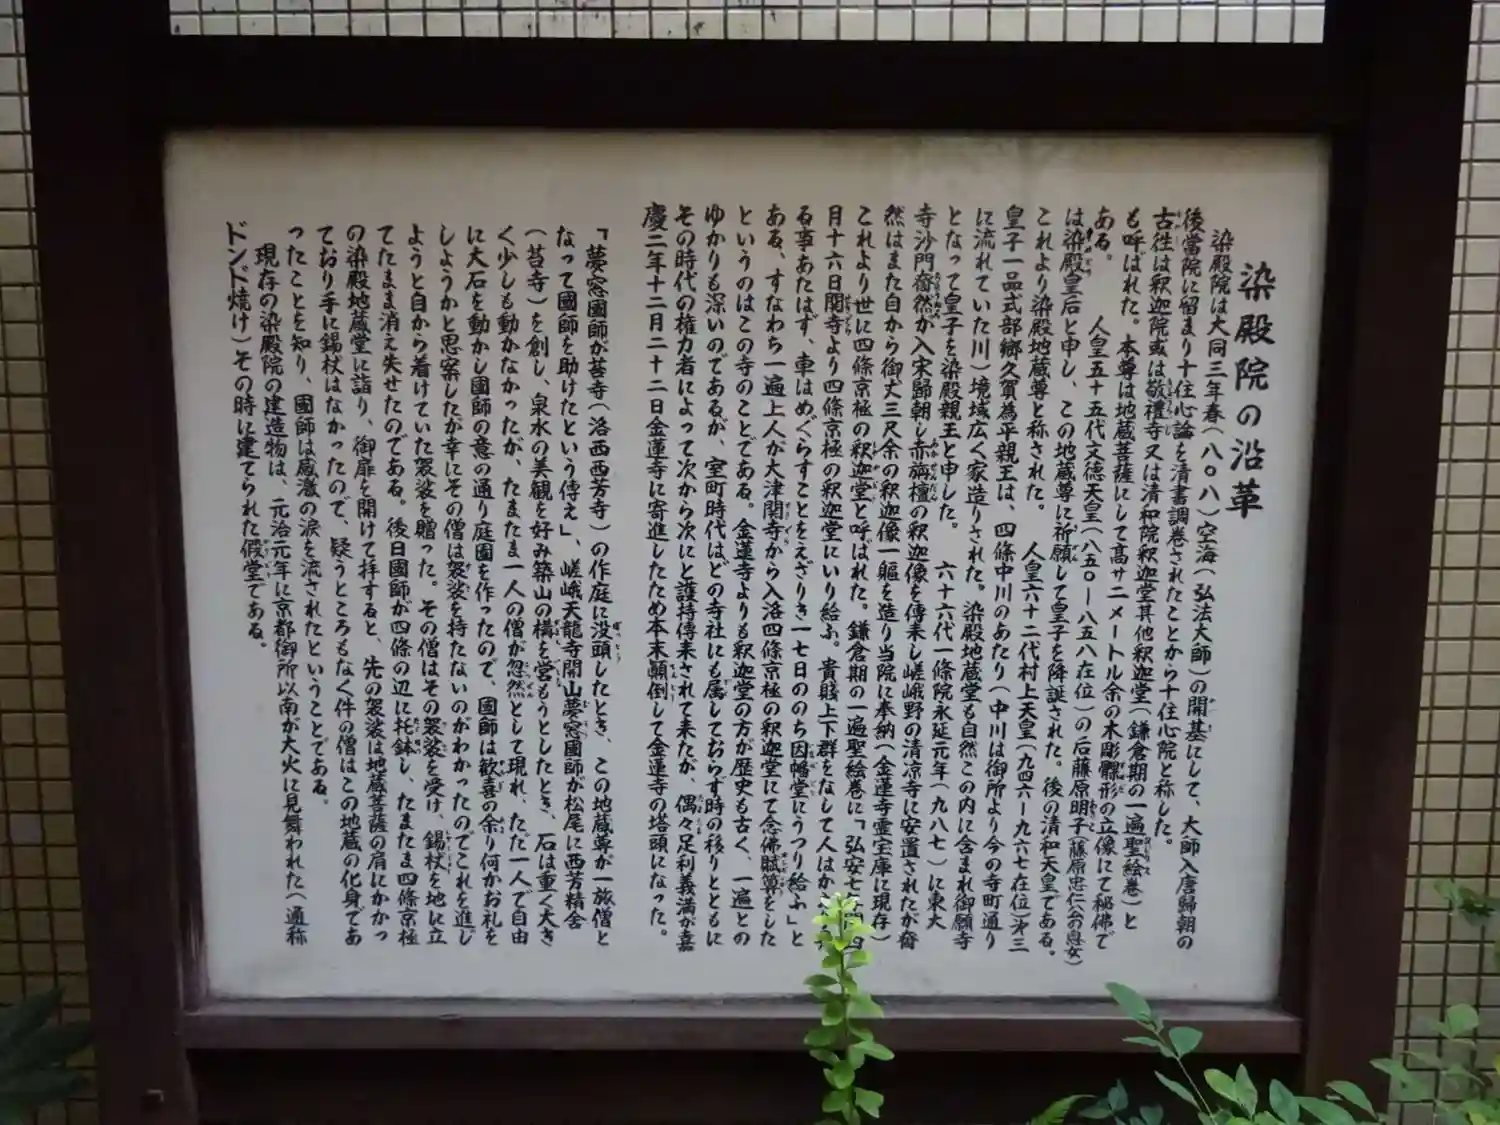 染殿院の沿革
染殿院は大同三年春(八〇八)空海(弘法大師)の開基にして、大師入唐歸朝の
後當院に留まり十住心論を清書調巻されたことから十住心院と称した。
古徃は釈迦院或は敬禮寺又は清和院釈迦堂其他釈迦堂(鎌倉期の一遍聖絵巻)と
も呼ばれた。本尊は地蔵菩薩にして高サ二メートル余の木彫躶形の立像にて秘佛で
ある。 人皇五十五代文徳天皇(八五〇ー八五八在位)の后藤原明子(藤原忠仁公の息女)
は染殿皇后と申し、この地蔵尊に祈願して皇子を降誕された。後の清和天皇である。
これより染殿地蔵尊と称された。 人皇六十二代村上天皇(九四六ー九六七在位)㐧三
皇子一品式部郷久賀為平親王は、四條中川のあたり(中川は御所より今の寺町通り
に流れていた川)境域広く家造りされた。染殿地蔵堂も自然この内に含まれ御願寺
となって皇子を染殿親王と申した。 六十六代一條院永延元年(九八七)に東大
寺沙門奝然が入宋歸朝し赤旃檀の釈迦像を傳来し嵯峨野の清凉寺に安置されたが奝
然はまた自から御丈三尺余の釈迦像一軀を造り当院に奉納(金蓮寺霊宝庫に現存)
これより世に四條京極の釈迦堂と呼ばれた。鎌倉期の一遍聖絵巻に「弘安七 四
月十六日関寺より四條京極の釈迦堂にいり給ふ。貴賤上下群をなして人はか
る事あたはず、車はめぐらすことをえざりき一七日ののち因幡堂にうつり給ふ」と
ある、すなわち一遍上人が大津関寺から入洛四條京極の釈迦堂にて念佛賦算をした
というのはこの寺のことである。金蓮寺よりも釈迦堂の方が歴史も古く、一遍との
ゆかりも深いのであるが、室町時代はどの寺社にも属しておらず時の移りとともに
その時代の権力者によって次から次にと護持傳来されて来たが、偶々足利義満が嘉
慶二年十二月二十二日金蓮寺に寄進したため本末顚倒して金蓮寺の塔頭になった。
「夢窓國師が苔寺(洛西西芳寺)の作庭に没頭したとき、この地蔵尊が一旅僧と
なって國師を助けたという傳え」、嵯峨天龍寺開山夢窓國師が松尾に西芳精舎
(苔寺)を創し、泉水の美観を好み築山の構を営もうとしたとき、石は重く大き
く少しも動かなかったが、たまたま一人の僧が忽然として現れ、たた一人で自由
に大石を動かし國師の意の通り庭園を作ったので、國師は歓喜の余り何かお礼を
しようかと思案したが幸にその僧は袈裟を持たないのがわかったのでこれを進じ
ようと自から着けていた袈裟を贈った。その僧はその袈裟を受け、錫杖を地に立
てたまま消え失せたのである。後日國師が四條の辺に托鉢し、たまたま四條京極
の染殿地蔵堂に詣り、御扉を開けて拝すると、先の袈裟は地蔵菩薩の肩にかかっ
ており手に錫杖はなかったので、疑うところもなく件の僧はこの地蔵の化身であ
ったことを知り、國師は感激の涙を流されたということである。
現存の染殿院の建造物は、元治元年に京都御所以南が大火に見舞われた(通称
ドンド焼け)その時に建てられた假堂である。